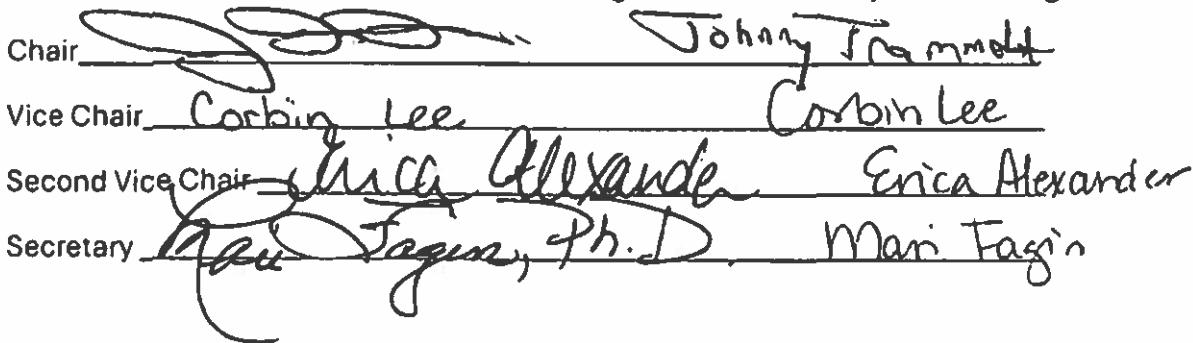 Chair Johnny Trammell
Vice Chair Corbin Lee Corbin Lee
Second Vice Chair Erica Alexander Erica Alexander
Secretary Mari Fagin, Ph.D. Mari Fagin